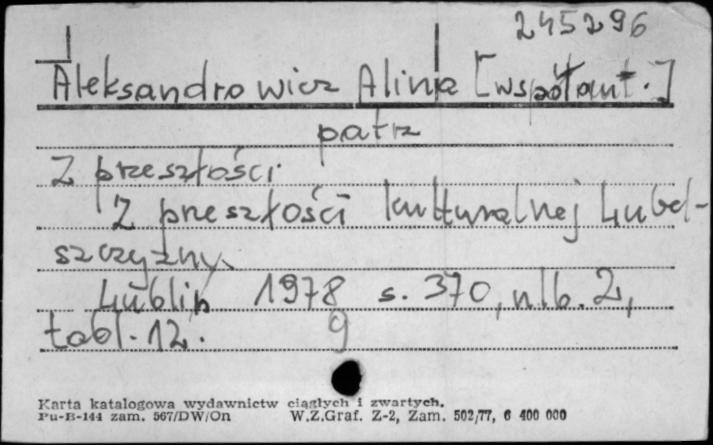 245296
Aleksandrowicz Alina [współaut.]
patrz
Z przeszłości
Z przeszłości kulturalnej Lubel-
szczyzny.
Lublin 1978 s. 370, nlb. 2,
tabl. 12. 9
Karta katalogowa wydawnictw ciągłych i zwartych.
Pu-B-144 zam. 567/DW/On W.Z.Graf. Z-2, Zam. 502/77, 6 400 000